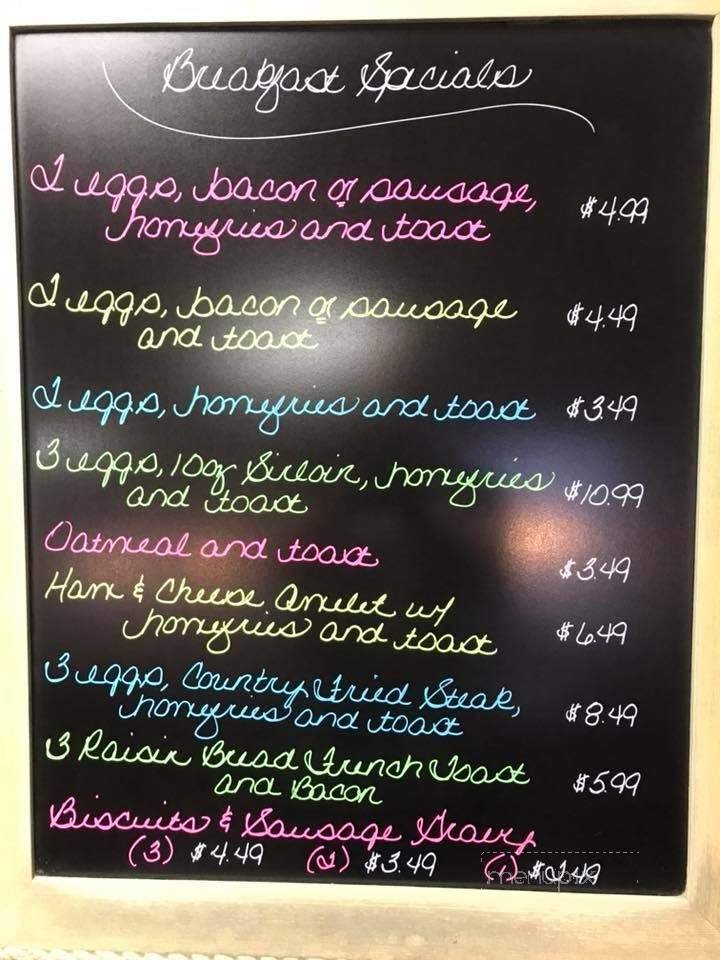 Breakfast Specials
2 eggs, bacon or sausage, $4.99
homefries and toast
2 eggs, bacon or sausage $4.49
and toast
2 eggs, homefries and toast $3.49
3 eggs, 10oz Sirloin, homefries $10.99
and toast
Oatmeal and toast $3.49
Ham & Cheese Omelet w/ $6.49
homefries and toast
3 eggs, Country Fried Steak, $8.49
homefries and toast
3 Raisin Bread French Toast $5.99
and Bacon
Biscuits & Sausage Gravy
(3) $4.49 (2) $3.49 (1) $2.49
menupix